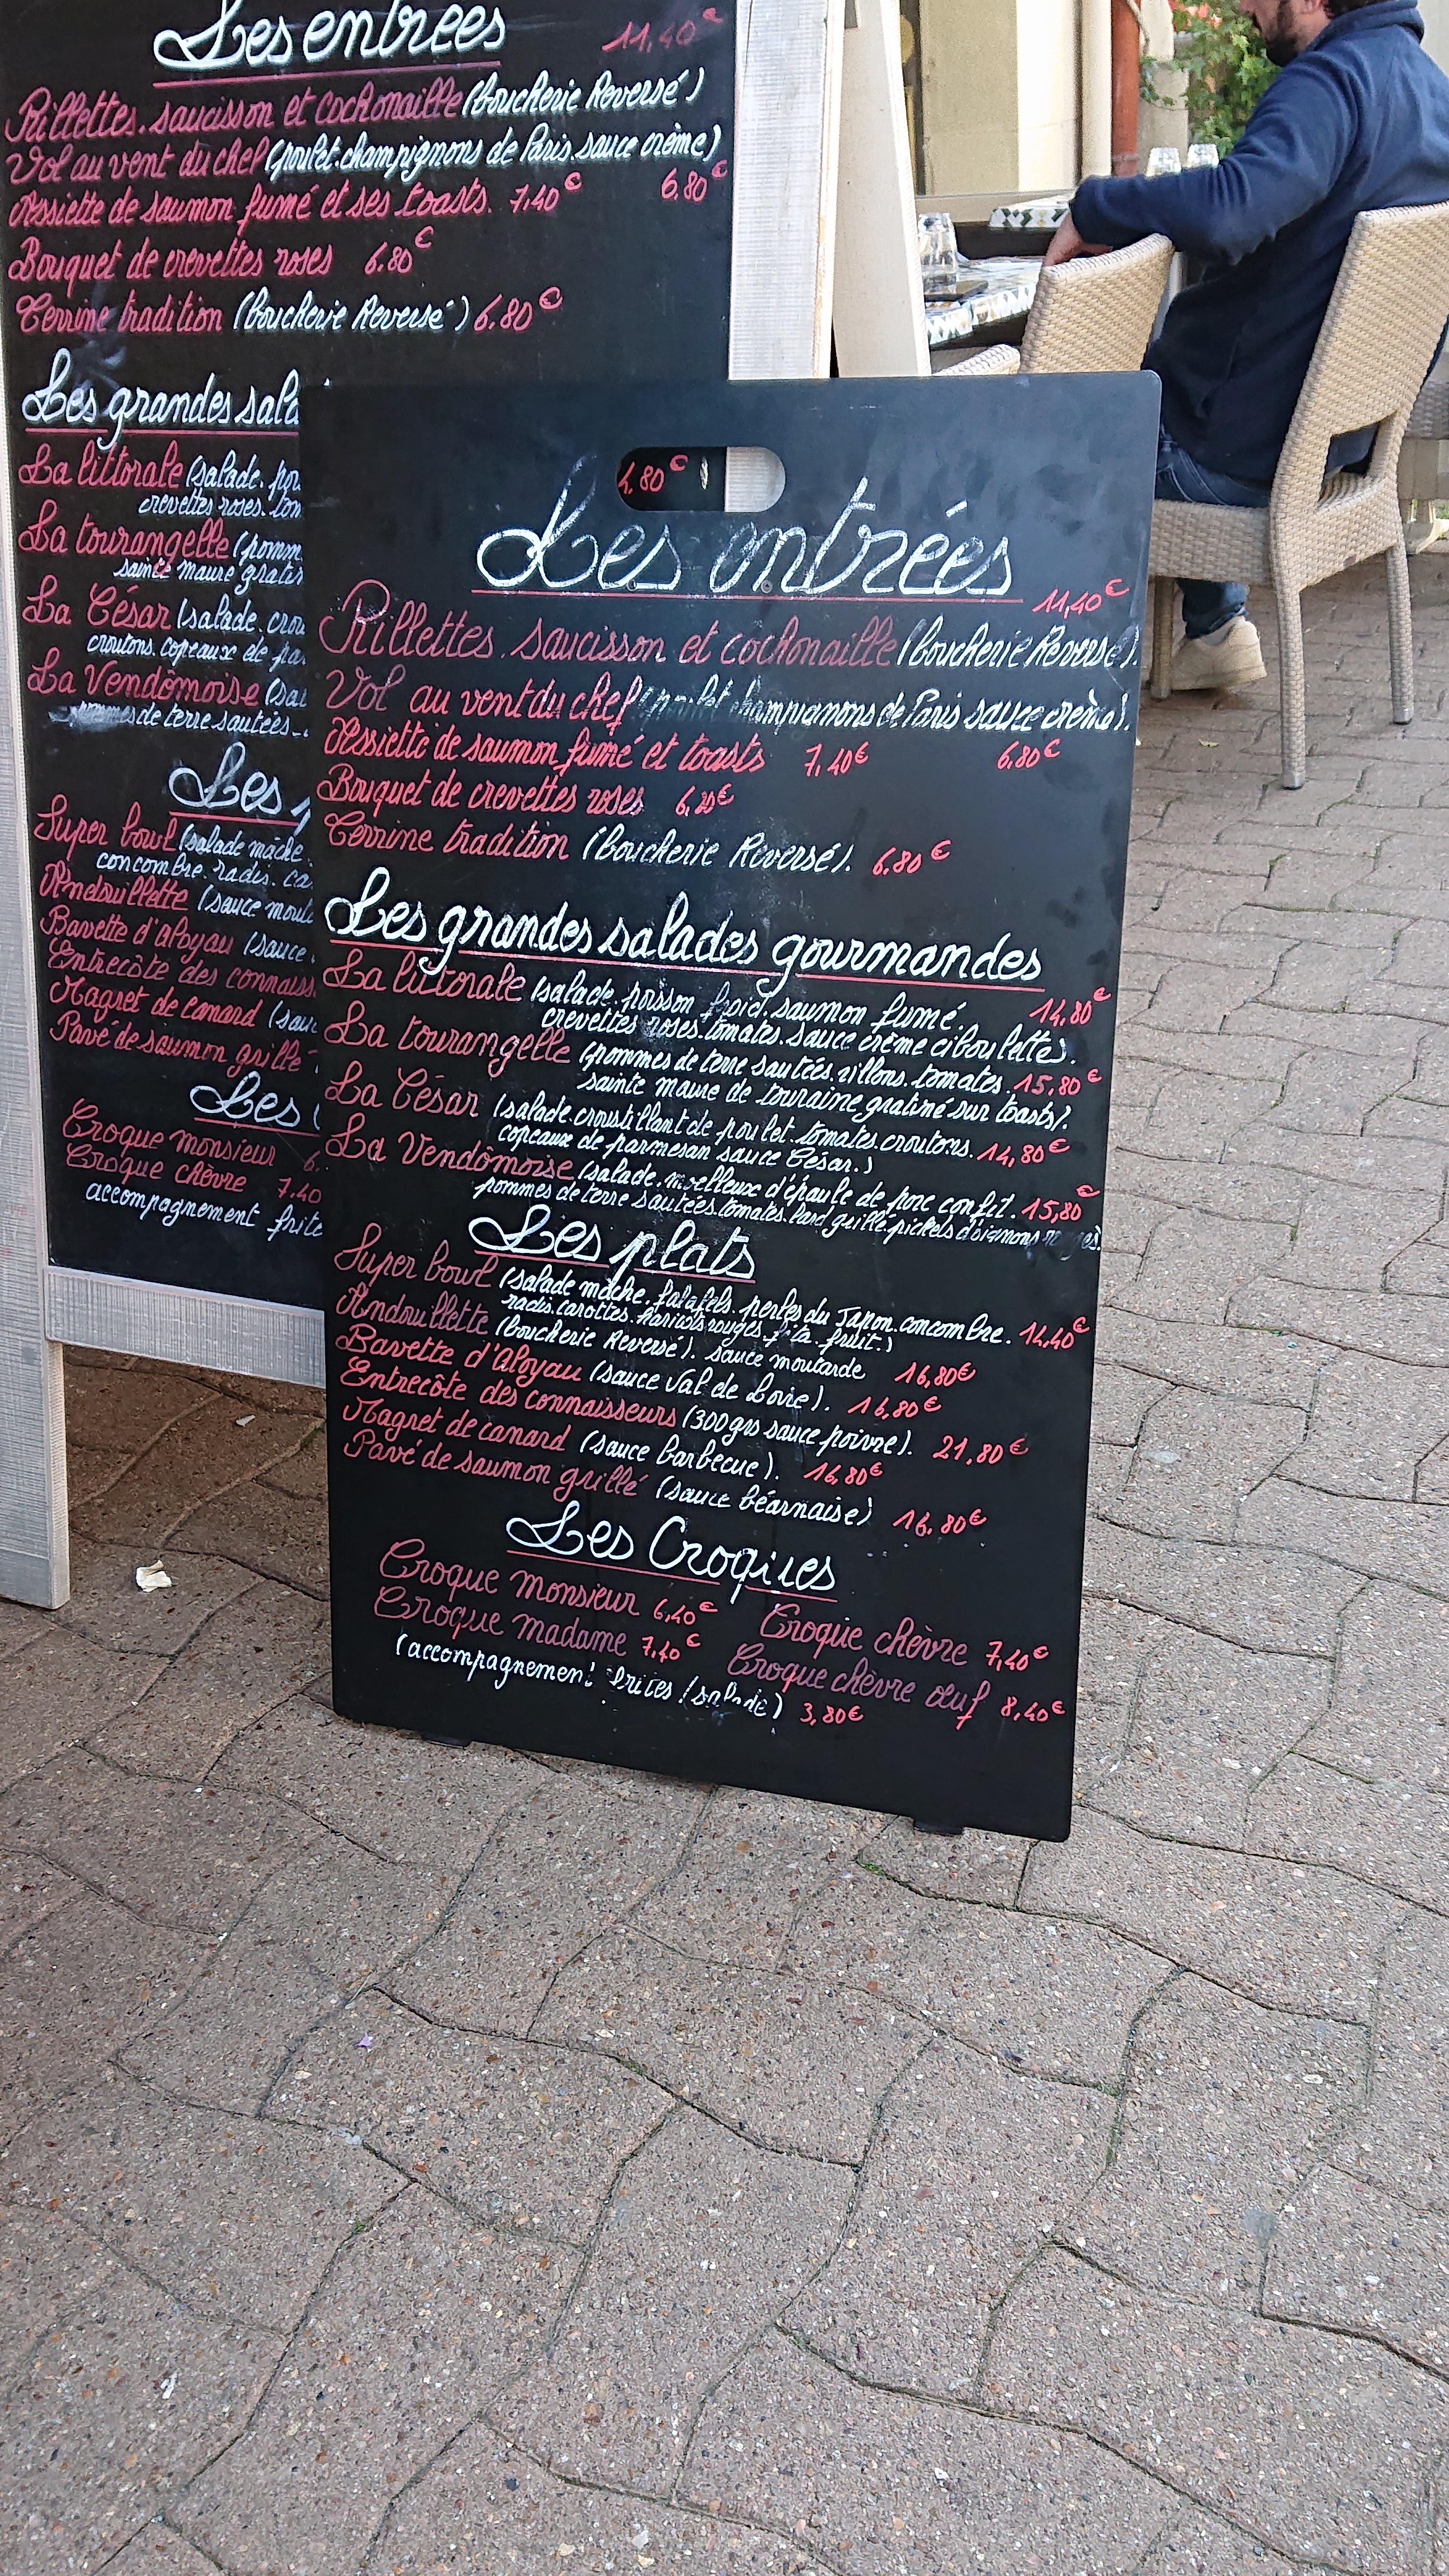 Les entrées
11,40€
Rillettes. saucisson et cochonaille (boucherie Reversé)
Vol au vent du chef (poulet. champignons de Paris. sauce crème)
6.80€
Assiette de saumon fumé et ses toasts. 7.40€
Bouquet de crevettes roses 6.80€
Terrine tradition (boucherie Reversé) 6.80€
Les grandes sala
La littorale (salade. poi
crevettes roses. tom
La tourangelle (pomm
sainte maure gratin
La César (salade. crou
croutons. copeaux de pa
La Vendômoise (sal
pommes de terre sautées
Les p
Super bowl (salade mâche.
concombre. radis. ca
Andouillette (sauce mouta
Bavette d'aloyau (sauce
Entrecôte des connaiss
Magret de canard (sau
Pavé de saumon grillé
Les
Croque monsieur 6.
Croque chèvre 7.40
accompagnement frite
4.80€
Les entrées
11,40€
Rillettes. saucisson et cochonaille (boucherie Reversé).
Vol au vent du chef (poulet champignons de Paris sauce crème).
6.80€
Assiette de saumon fumé et toasts 7,40€
Bouquet de crevettes roses 6,80€
Terrine tradition (boucherie Reversé). 6.80€
Les grandes salades gourmandes
La littorale (salade. poisson froid. saumon fumé. 14,80€
crevettes roses. tomates. sauce crème ciboulette).
La tourangelle (pommes de terre sautées. rillons. tomates. 15,80€
sainte maure de touraine gratiné sur toasts).
La César (salade. croustillant de poulet. tomates. croutons. 14,80€
copeaux de parmesan sauce César.)
La Vendômoise (salade. moelleux d'épaule de porc confit. 15,80€
pommes de terre sautées. tomates. lard grillé. pickels d'oignons rouges).
Les plats
Super bowl (salade mâche. falafels. perles du Japon. concombre. 14,40€
radis. carottes. haricots rouges. fruit.)
Andouillette (boucherie Reversé). sauce moutarde 16,80€
Bavette d'Aloyau (sauce Val de Loire). 16,80€
Entrecôte des connaisseurs (300grs sauce poivre). 21,80€
Magret de canard (sauce barbecue). 16,80€
Pavé de saumon grillé (sauce béarnaise) 16,80€
Les Croques
Croque monsieur 6,40€ Croque chèvre 7,40€
Croque madame 7,40€ Croque chèvre œuf 8,40€
(accompagnement frites / salade) 3,80€